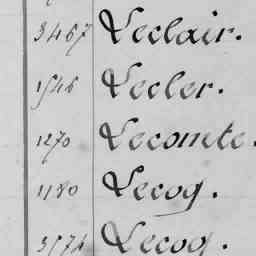 3467 Leclair.
1546 Lecler.
1270 Lecomte.
1180 Lecoq.
3574 Lecoq.